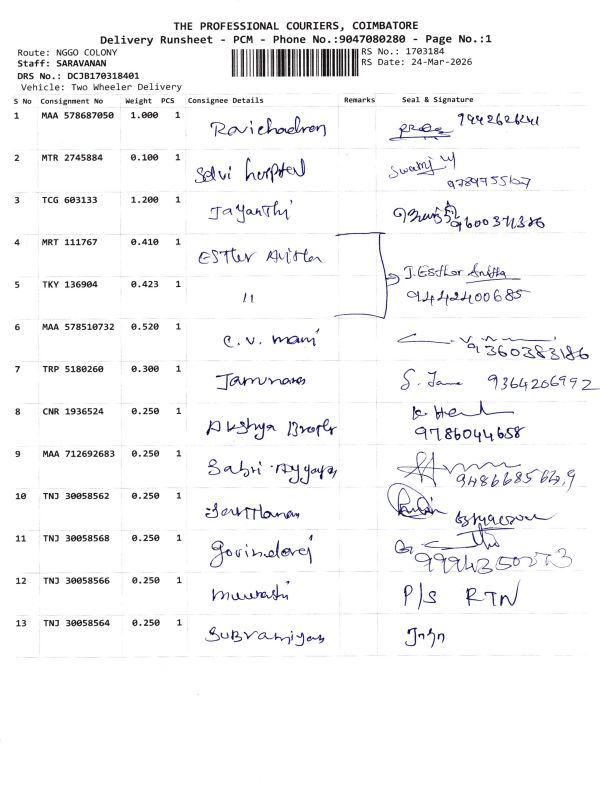 THE PROFESSIONAL COURIERS, COIMBATORE
Delivery Runsheet - PCM - Phone No.:9047080280 - Page No.:1
Route: NGGO COLONY RS No.: 1703184
Staff: SARAVANAN RS Date: 24-Mar-2026
DRS No.: DCJB170318401
Vehicle: Two Wheeler Delivery
S No Consignment No Weight PCS Consignee Details Remarks Seal & Signature
1 MAA 578687050 1.000 1
2 MTR 2745884 0.100 1 Selvi
3 TCG 603133 1.200 1 Jayanthi 9600371386
4 MRT 111767 0.410 1 Esther
5 TKY 136904 0.423 1 11 J. Esther Anitta
9442400685
6 MAA 578510732 0.520 1 C. V. mani
9360383186
7 TRP 5180260 0.300 1 S. 9364206992
8 CNR 1936524 0.250 1 Akshya
9786044658
9 MAA 712692683 0.250 1 Sabri
10 TNJ 30058562 0.250 1
11 TNJ 30058568 0.250 1 Govindaraj
12 TNJ 30058566 0.250 1 P/S RTN
13 TNJ 30058564 0.250 1